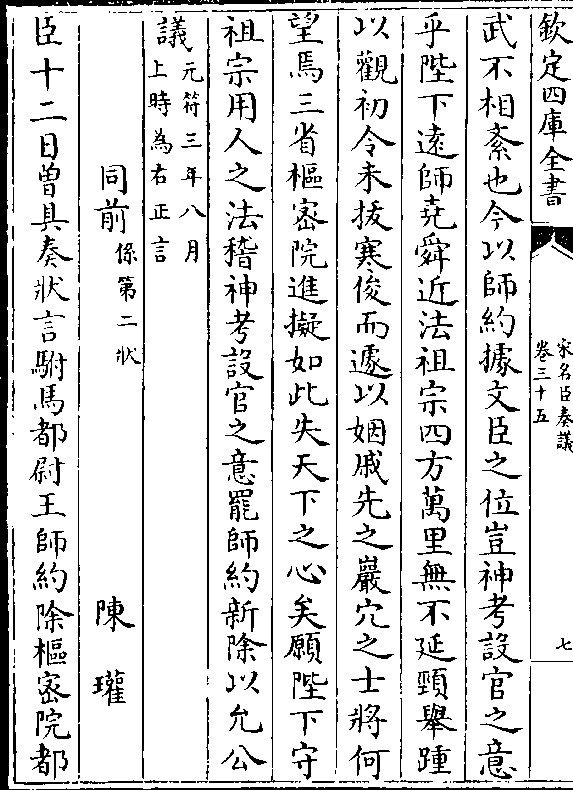 欽定四庫全書
宋名臣奏議
卷三十五
七
武不相紊也今以師約據文臣之位豈神考設官之意
乎陛下遠師堯舜近法祖宗四方萬里無不延頸舉踵
以觀初令未拔寒俊而遽以姻戚先之巖穴之士將何
望焉三省樞密院進擬如此失天下之心矣願陛下守
祖宗用人之法稽神考設官之意罷師約新除以允公
議元符三年八月
上時為右正言
同前係第二狀
陳瓘
臣十二日曾具奏狀言駙馬都尉王師約除樞密院都